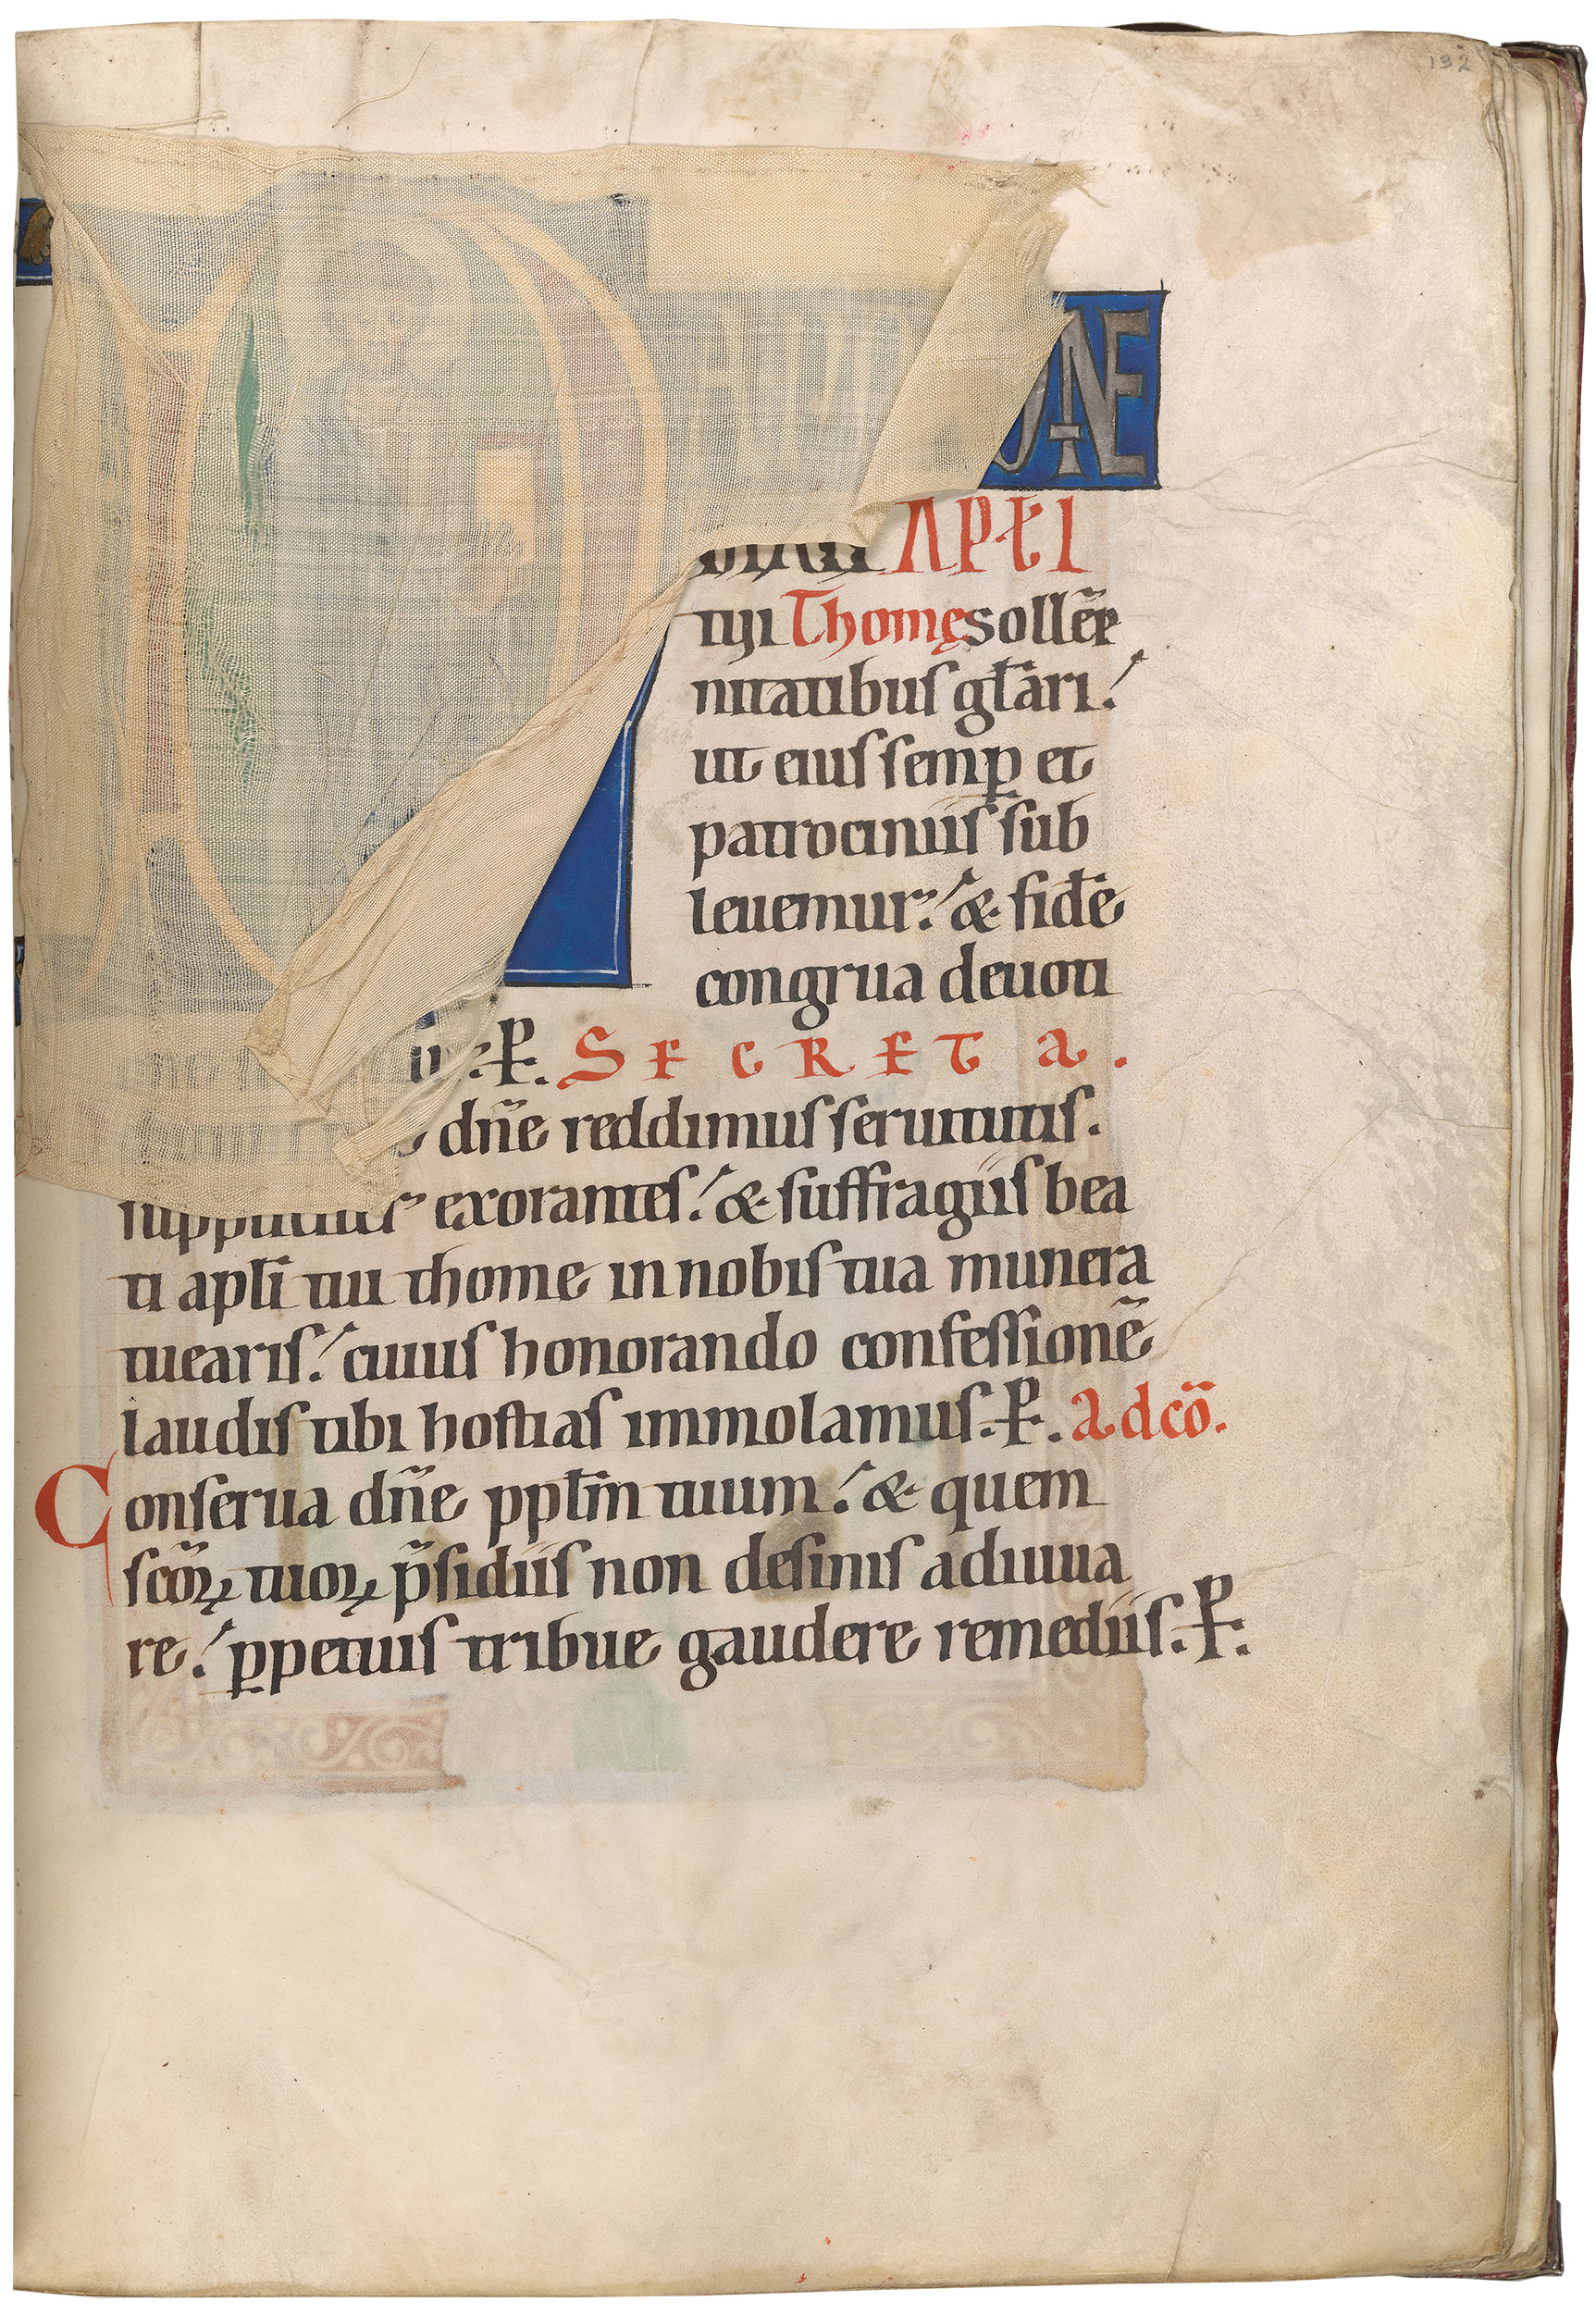 132
APƚI
tui Thomę sollẽp
nitatibus gƚari.
ut eius semp̲ et
patrociniis sub
leuemur. & fidẽ
congrua deuoti
P. SECRETA.
dñe reddimus seruitutis.
exorantes. & suffragiis bea
ti apƚi tui thome in nobis tua munera
tuearis. cuius honorando confessionẽ
laudis tibi hostias immolamus. P. adcõ.
Conserua dñe ppƚm tuum. & quem
scõꝝ tuoꝝ p̃sidiis non desinis adiuua
re. ꝑpetuis tribue gaudere remediis. P.